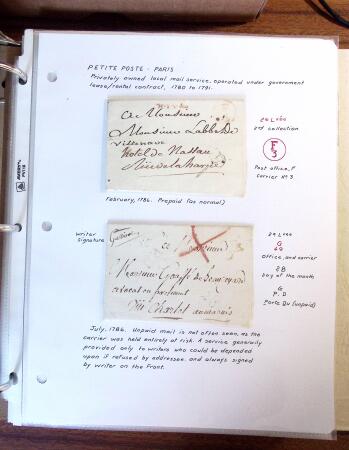 PETITE POSTE - PARIS
Privately owned local mail service, operated under government
lease/rental contract, 1780 to 1791.
A Monsieur
Monsieur Labbé De
Villenave
Hotel de Nassau
Rue de la harpe
2e Levée
2nd collection
F
3
Post office, F
Carrier Nº 3
February, 1786. Prepaid (as normal)
Writer
signature
a Monsieur
Monsieur
avocat en parlement
Rue Charlot au marais
2e Levée
G
Office, and carrier
28
Day of the month
G
P.D
Porte Du (unpaid)
July, 1786. Unpaid mail is not often seen, as the
carrier was held entirely at risk. A service generally
provided only to writers who could be depended
upon if refused by addressee, and always signed
by writer on the front.